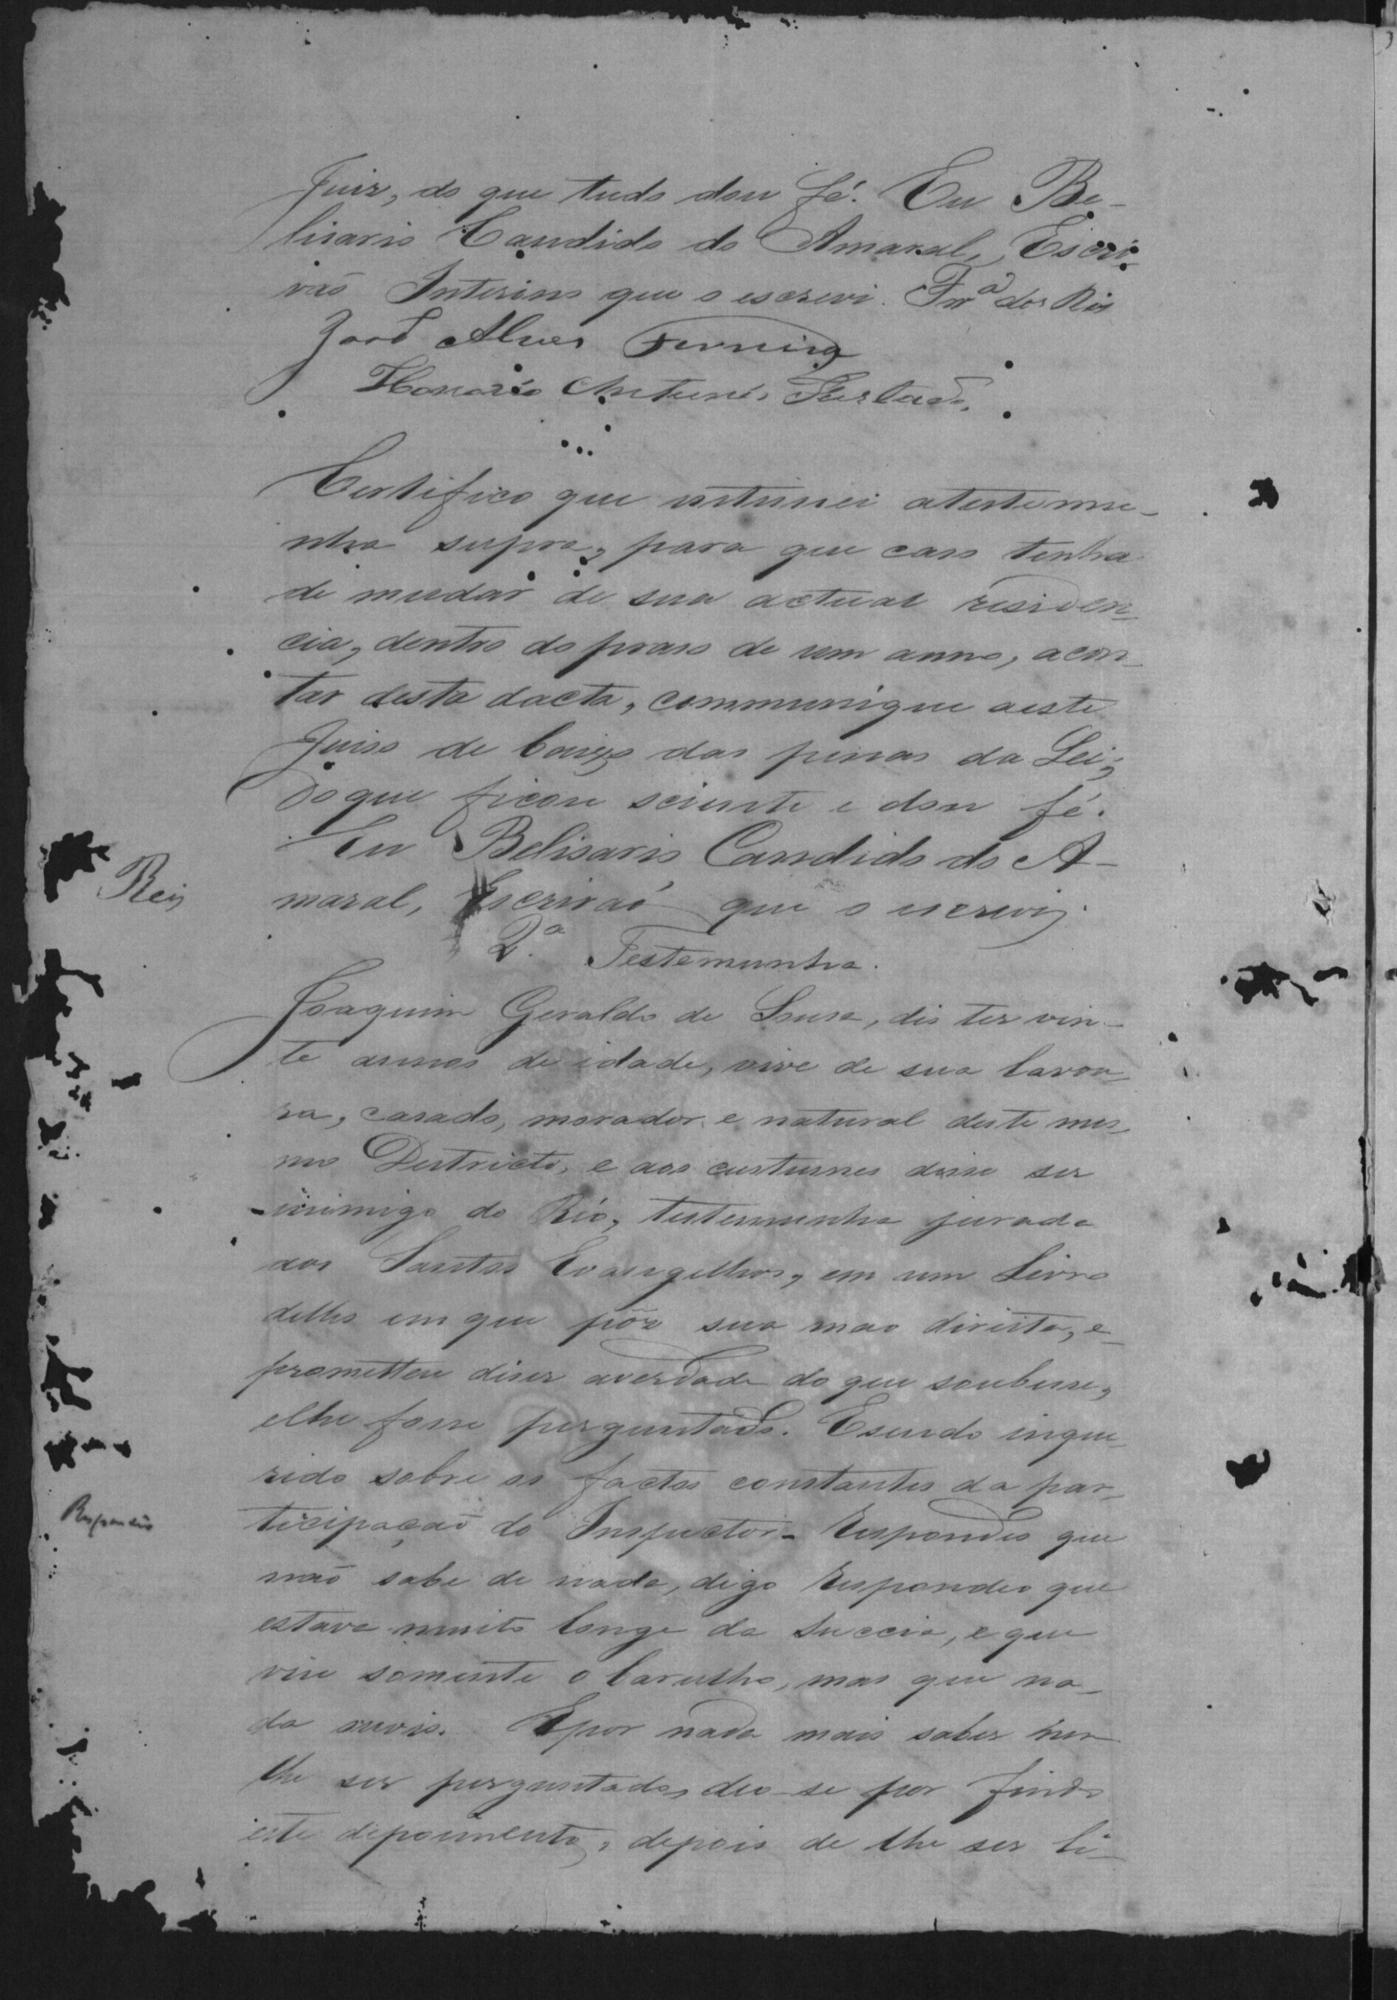 Juiz, do que tudo dou fé. Eu Be-
lisario Candido do Amaral, Escri-
vão Interino que o escrevi. Frª dos Reis
José Alves Ferreira
Honorio Antunes Furtado
Certifico que intimei atestemu-
nha supra, para que caso tenha
de mudar de sua actual residen-
cia, dentro do praso de um anno, acon-
tar desta dacta, communique aeste
Juiso de baixo das penas da Lei;
Doque ficou sciente e dou fé.
Eu Belisario Candido do A-
Reis
maral, Escrivão que o escrevi.
2ª Testemunha.
Joaquim Geraldo de Sousa, dis ter vin-
te annos de idade, vive de sua lavou-
ra, casado, morador e natural deste mes-
mo Districto, e aos custumes disse ser
inimigo do Réo, testemunha jurada
aos Santos Evangelhos, em um Livro
delles em que pôz sua mao direita, e
prometteu diser averdade do que soubesse,
elhe fosse perguntado. Esendo inque-
rido sobre os factos constantes da par-
Respondeo
ticipação do Inspector- Respondeo que
não sabe de nada, digo Respondeo que
estava muito longe da succia, e que
vio somente o barulho, mas que na-
da ouvio. Epor nada mais saber nem
lhe ser perguntado, deo-se por findo
este depoimento, depois de lhe ser li-